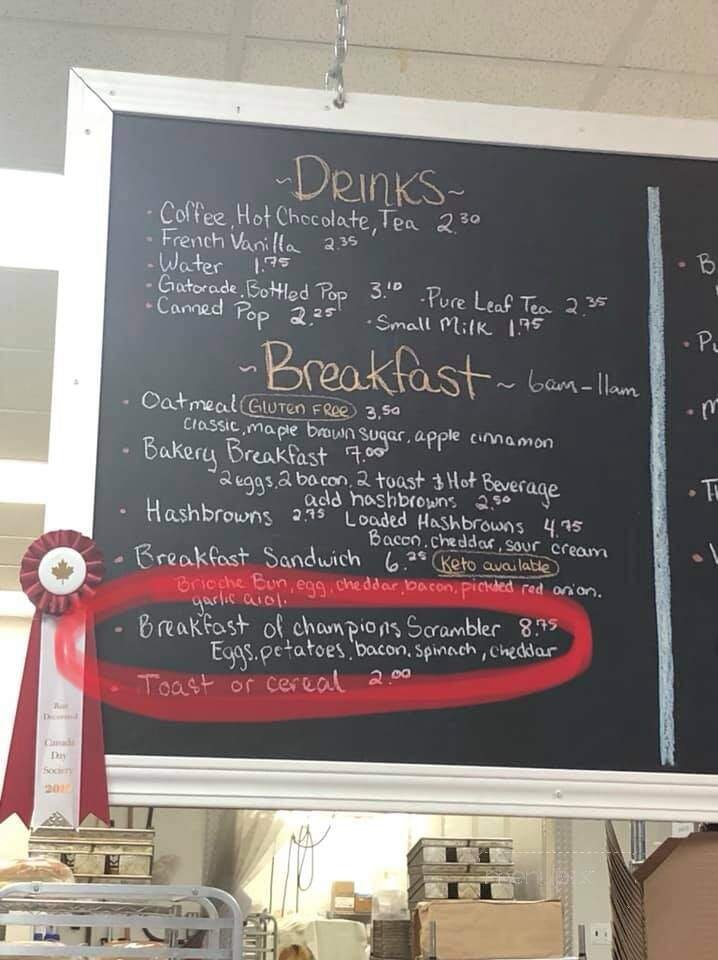 ~DRINKS~
· Coffee, Hot Chocolate, Tea 2.30
· French Vanilla 2.35
· Water 1.75
· Gatorade, Bottled Pop 3.10 · Pure Leaf Tea 2.35
· Canned Pop 2.25 · Small Milk 1.75
~Breakfast~ 6am-11am
· Oatmeal GLUTEN FREE 3.50
Classic, maple brown sugar, apple cinnamon
· Bakery Breakfast 7.00
2 eggs, 2 bacon, 2 toast & Hot Beverage
add hashbrowns 2.50
· Hashbrowns 2.75 Loaded Hashbrowns 4.75
Bacon, cheddar, sour cream
· Breakfast Sandwich 6.25 Keto available
Brioche Bun, egg, cheddar, bacon, pickled red onion,
garlic aioli.
· Breakfast of champions Scrambler 8.75
Eggs, potatoes, bacon, spinach, cheddar
· Toast or cereal 2.00
Best
Decorated
Canada
Day
Society
· B
· Pu
· M
· T